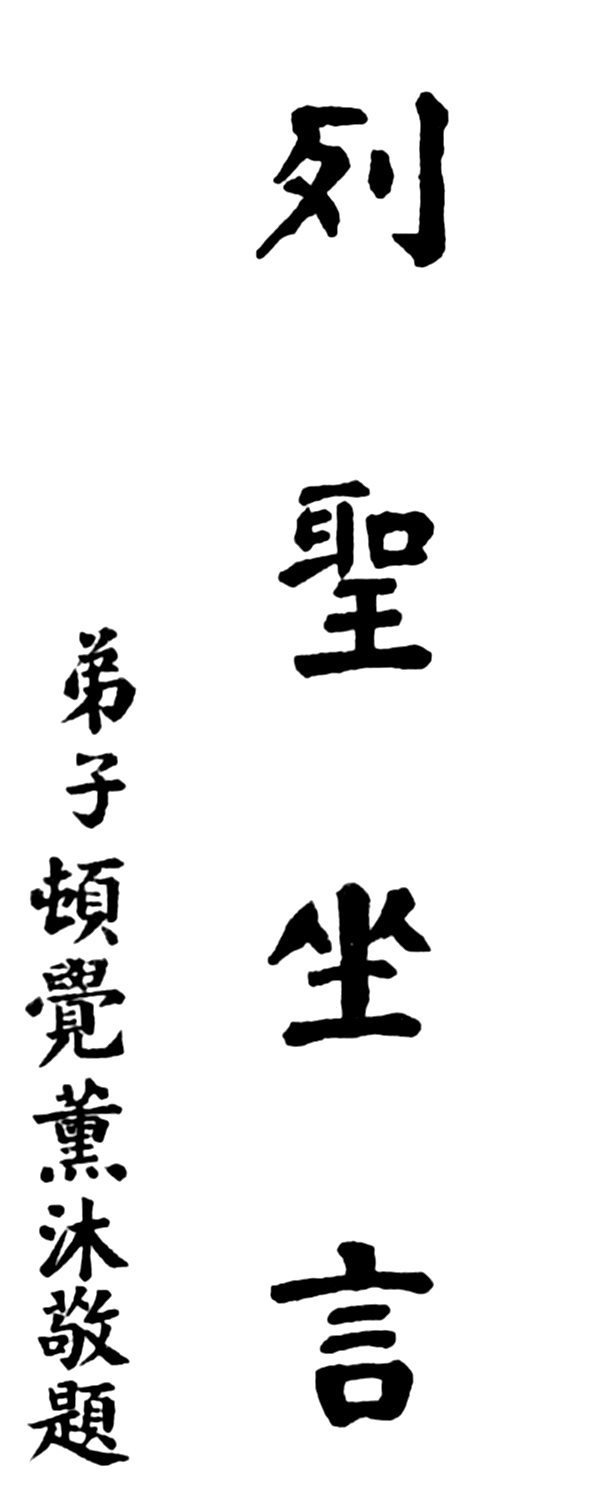 列聖坐言
弟子頓覺薰沐敬題